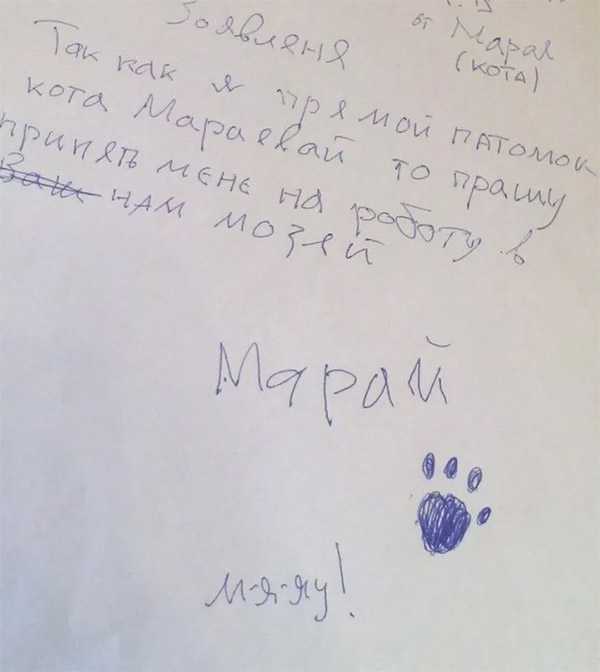 Зоявленя
от Марая
(КОТА)
Так как я прямой патомок
кота Мараевай то прашу
принять мене на роботу в
Ваш нам мозей
Марай
м-я-яу!